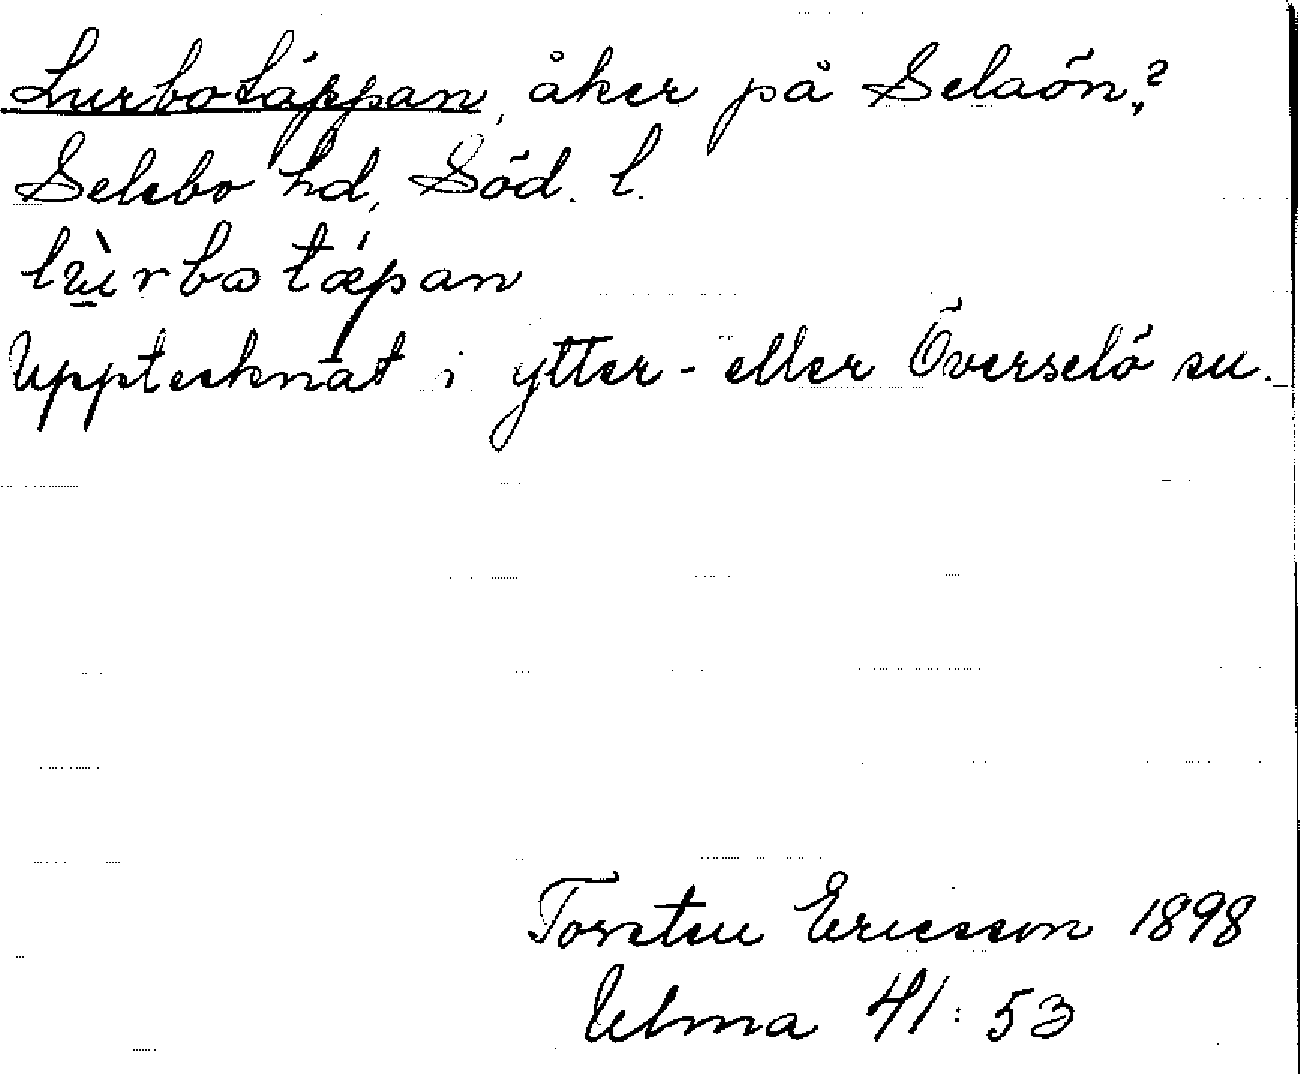 Lurbotäppan, åker på Selaön,?
Selebo hd, Söd. l.
lu̱̇̀rbotäpan
Upptecknat i ytter- eller Överselö sn.
Torsten Ericsson 1898
Ulma 41:53